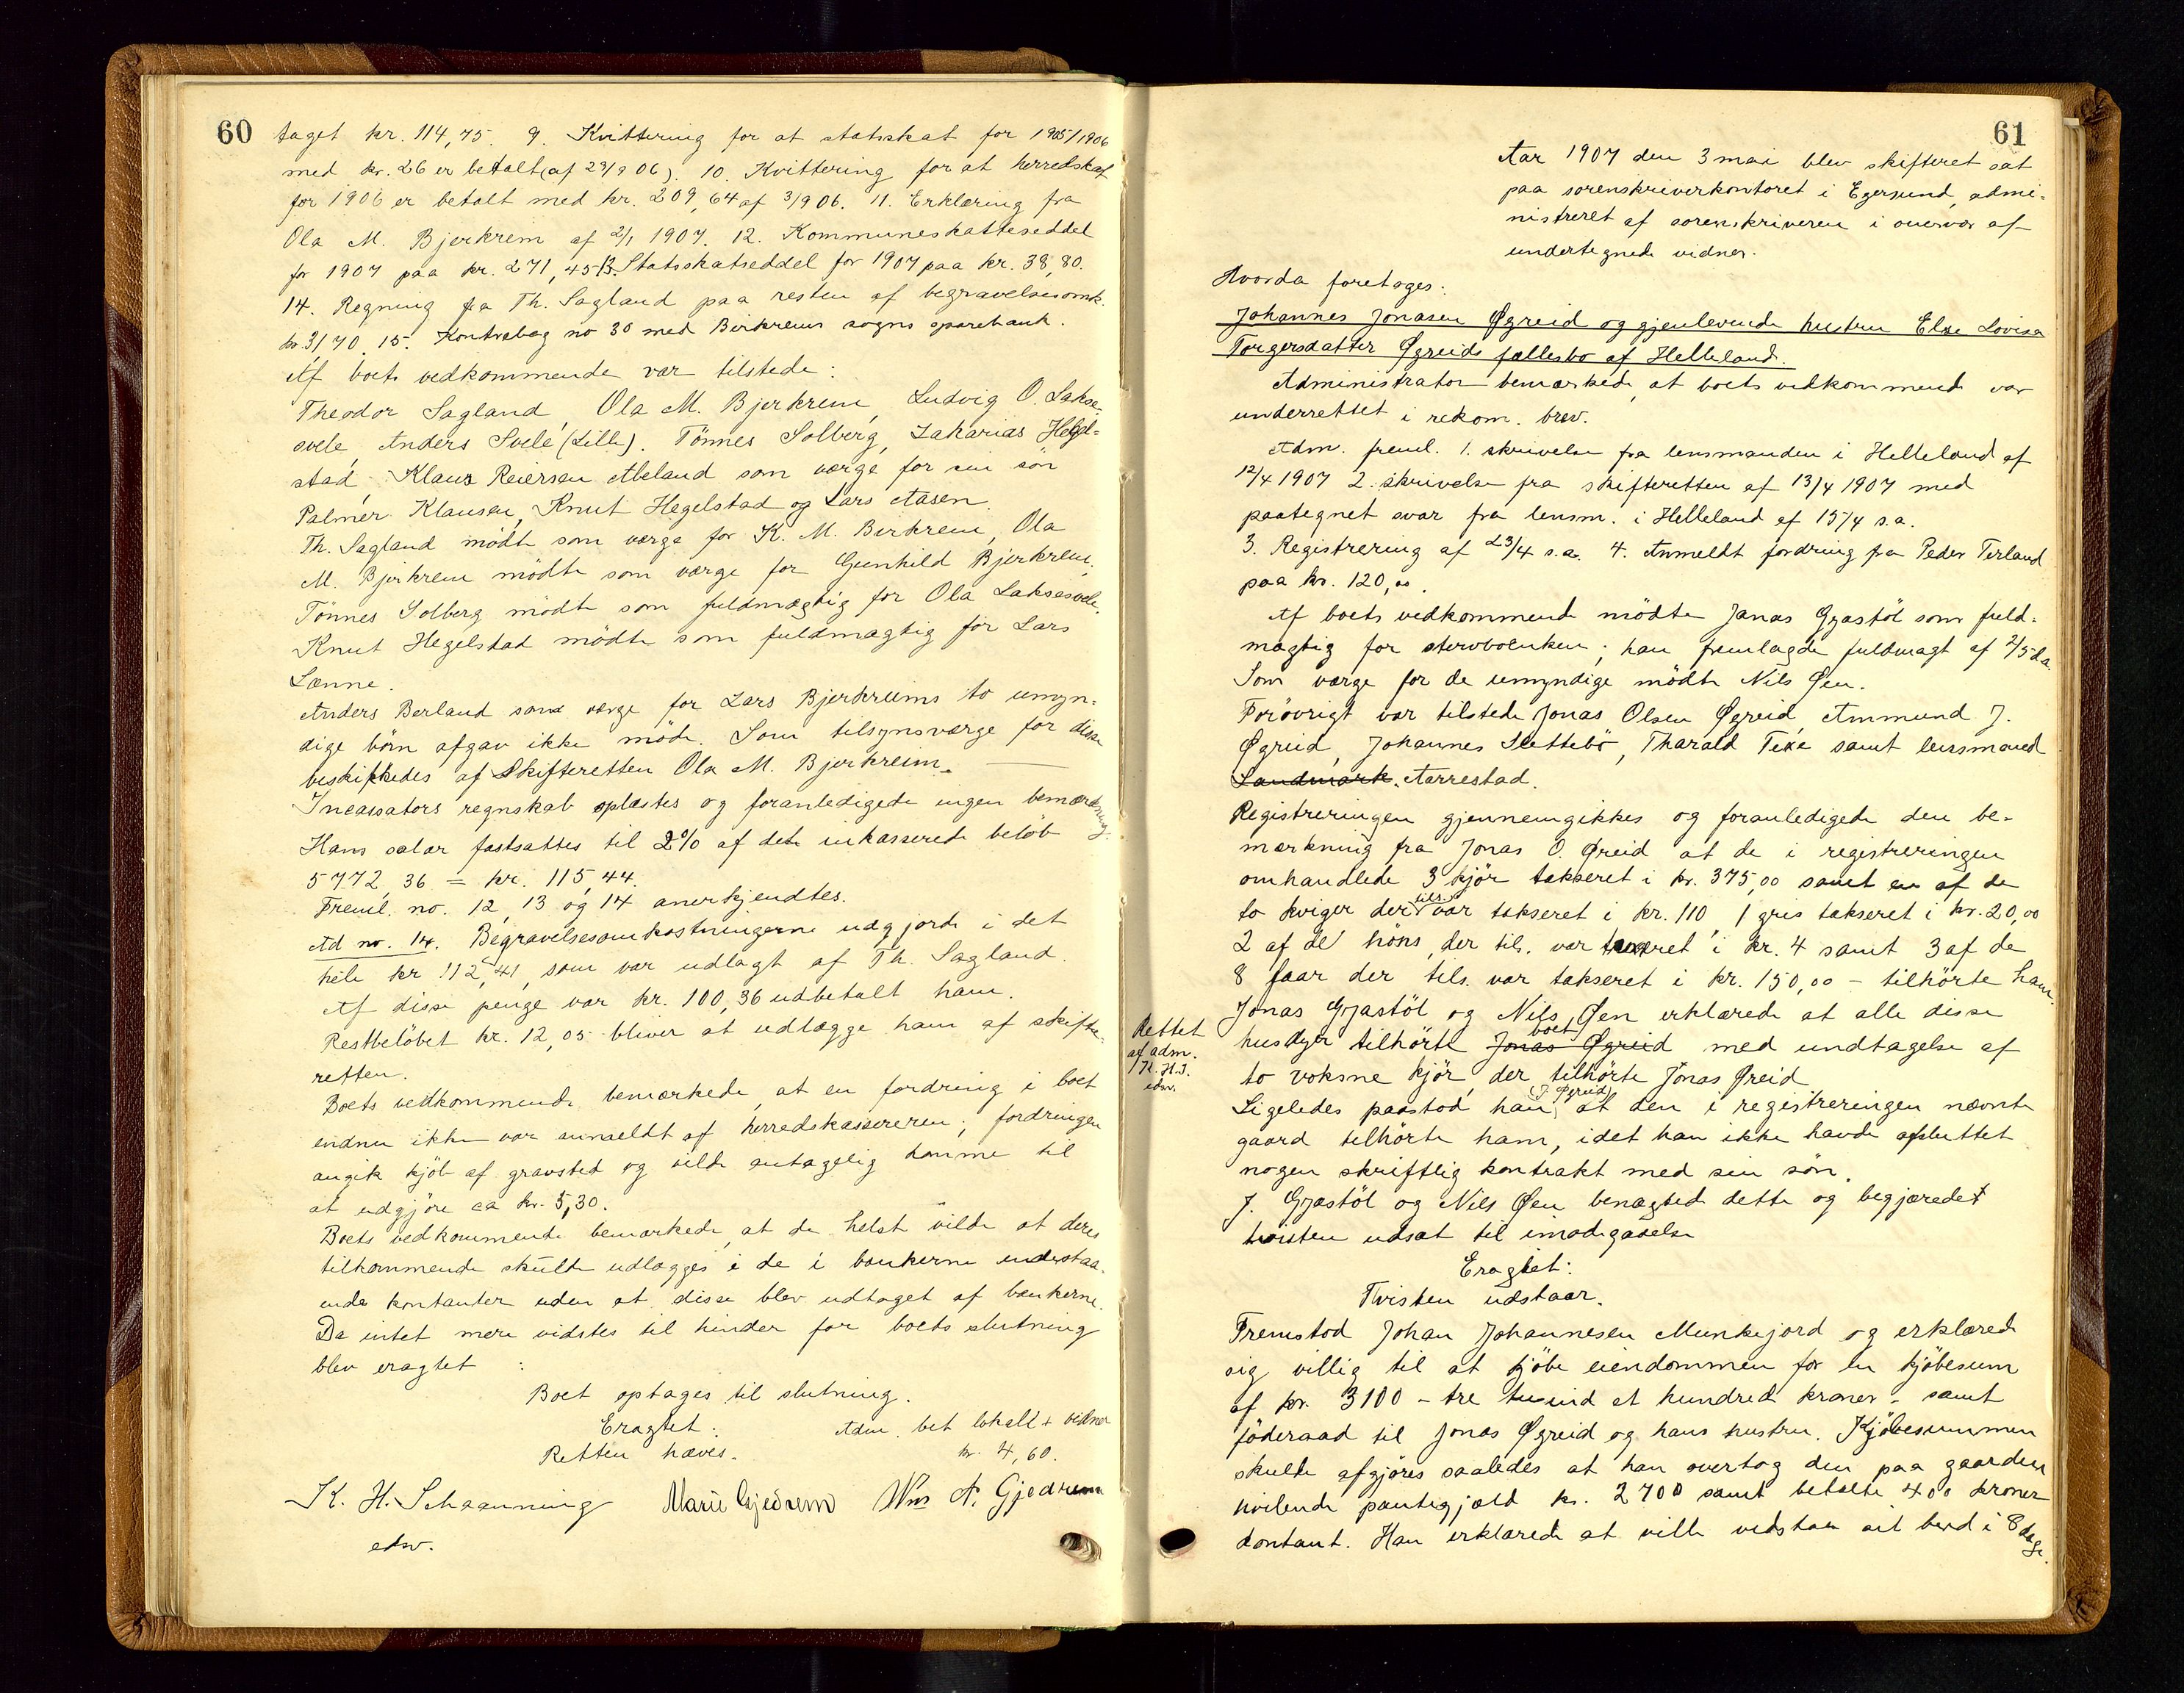 60
taget kr. 114,75. 9. Kvittering for at statsskat for 1905/1906
med kr. 26 er betalt (af 23/9 06). 10. Kvittering for at herredskat
for 1906 er betalt med kr. 209,64 af 3/9 06. 11. Erklæring fra
Ola M. Bjerkrem af 2/1 1907. 12. Kommuneskatteseddel
for 1907 paa kr. 271,45 13. Statsskatseddel for 1907 paa kr. 38,80.
14. Regning fra Th. Sagland paa resten af begravelsesomk.
kr. 31,70. 15. Kontrabog no 30 med Birkrems sogns sparebank.
Af boets vedkommende var tilstede:
Theodor Sagland, Ola M. Bjerkrem, Ludvig O. Lakse-
svele, Anders Svele (Lille). Tönnes Solberg, Zakarias Hegel-
stad, Klaus Reiersen Aleland som værge for sin sön
Palmer Klausen, Knut Hegelstad og Lars Aasen.
Th. Sagland mödte som værge for K. M. Birkrem, Ola
M. Bjerkrem mödte som værge for Gunhild Bjerkrem.
Tönnes Solberg mödte som fuldmægtig for Ola Laksesvele.
Knut Hegelstad mödte som fuldmægtig for Lars
Lænne.
Anders Berland som værge for Lars Bjerkreims to umyn-
dige börn afgav ikke möde. Som tilsynsværge for disse
beskikkedes af Skifteretten Ola M. Bjerkreim.
Incassators regnskab oplæstes og foranledigede ingen bemærkning.
Hans salær fastsattes til 2% af det inkasserede belöb
5772,36 = kr. 115,44.
Freml. no. 12, 13 og 14 anerkjendtes.
Ad no. 14. Begravelsesomkostningerne udgjorde i det
hele kr 112,41, som var udlagt af Th. Sagland.
Af disse penge var kr. 100,36 udbetalt ham.
Restbelöbet kr. 12,05 bliver at udlægge ham af skifte-
retten.
Boets vedkommende bemærkede, at en fordring i boet
endnu ikke var anmeldt af herredskassereren; fordringen
angik kjöb af gravsted og vilde antagelig komme til
at udgjöre ca kr. 5,30.
Boets vedkommende bemærkede, at de helst vilde at deres
tilkommende skulde udlægges i de i bankerne indestaa-
ende kontanter uden at disse blev udtaget af bankerne.
Da intet mere vidstes til hinder for boets slutning
blev eragtet:
Boet optages til slutning.
Eragtet: Adm. bet lokall + vidner
Retten hæves. kr. 4,60.
K. H. Schaanning Marie Gjedrem Wm A. Gjedrem
edsv.
61
Aar 1907 den 3 mai blev skifteret sat
paa sorenskriverkontoret i Egersund, admi-
nistreret af sorenskriveren i overvær af
undertegnede vidner.
Hvorda foretages:
Johannes Jonasen Øgreid og gjenlevende hustru Else Lovisa
Torgersdatter Øgreids fællesbo af Helleland.
Administrator bemærkede, at boets vedkommende var
underrettet i rekom. brev.
Adm. freml. 1. skrivelse fra lensmanden i Helleland af
12/4 1907 2. skrivelse fra skifteretten af 13/4 1907 med
paategnet svar fra lensm. i Helleland af 15/4 s.a.
3. Registrering af 23/4 s.a. 4. Anmeldt fordring fra Peder Terland
paa kr. 120,00.
Af boets vedkommende mödte Jonas Gyastöl som fuld-
mægtig for stervboenken; han fremlagde fuldmagt af 2/5 d.a.
Som værge for de umyndige mödte Nils Øen.
Forövrigt var tilstede Jonas Olsen Øgreid Ammund J.
Øgreid, Johannes Slettebö, Tharald Teke samt lensmand
Landmark. Aarrestad.
Registreringen gjennemgikkes og foranledigede den be-
mærkning fra Jonas O. Øreid at de i registreringen
omhandlede 3 kjör takseret i kr. 375,00 samt en af de
to kviger der tils. var takseret i kr. 110 1 gris takseret i kr. 20,00
2 af de höns, der tils. var takseret i kr. 4 samt 3 af de
8 faar der tils. var takseret i kr. 150,00 – tilhörte ham.
Jonas Gyastöl og Nils Øen erklærede at alle disse
husdyr tilhörte Jonas Øgreid boet med undtagelse af
to voksne kjör, der tilhörte Jonas Øreid
Rettet
af adm.
K. H. S.
edsv.
Ligeledes paastod han (J. Øgreid) at den i registreringen nævnte
gaard tilhörte ham, idet han ikke havde afsluttet
nogen skriftlig kontrakt med sin sön.
J. Gyastöl og Nils Øen benægted dette og begjæredet
tvisten udsat til imödegaaelse
Eragtet:
Tvisten udstaar.
Fremstod Johan Johannesen Munkejord og erklæred
sig villig til at kjöbe eiendommen for en kjöbesum
af kr. 3100 – tre tusind et hundred kroner – samt
föderaad til Jonas Øgreid og hans hustru. Kjöbesummen
skulde afgjöres saaledes at han overtog den paa gaarden
hvilende pantegjæld kr. 2700 samt betalte 400 kroner
kontant. Han erklærede at ville vedstaa sit bud i 8 dage.